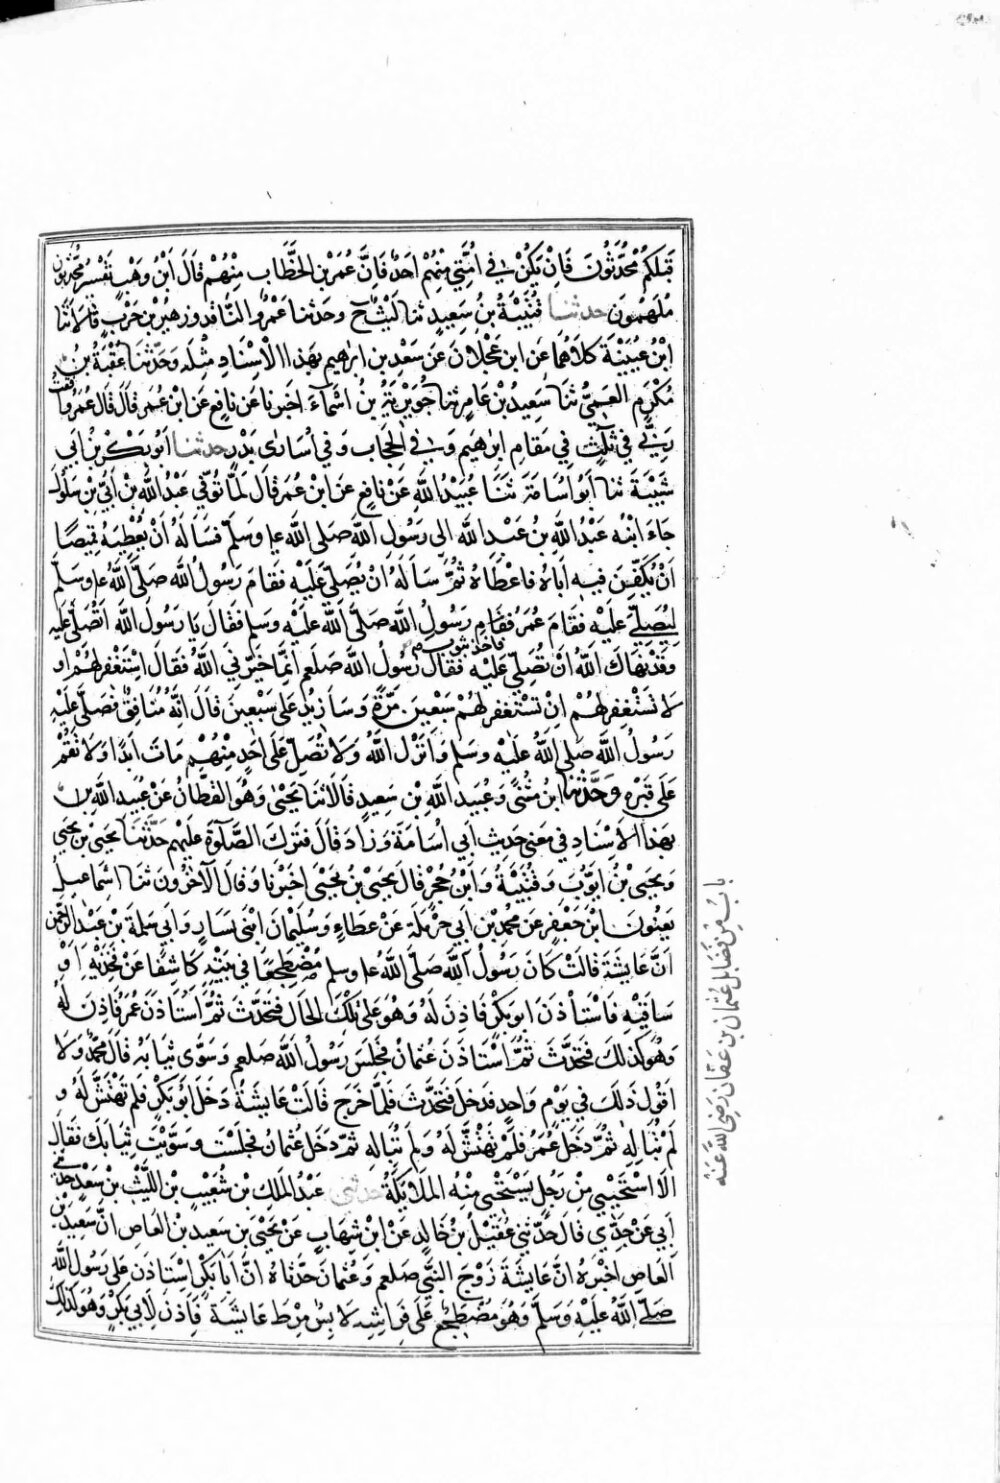 قَبْلَكُمْ مُحَدَّثُونَ فَاِنْ يَكُنْ فِي اُمَّتِي مِنْهُمْ اَحَدٌ فَاِنَّ عُمَرَ بْنَ الخَطَّاب مِنْهُمْ قَالَ ابْنُ وَهْبٍ تَفْسِيرُ مُحَدَّثُونَ
مُلْهَمُونَ حدثنا قُتَيْبَةُ بنُ سَعِيدٍ ثنا لَيْثٌ ح وحَدثنا عَمْرٌو النَّاقِدُ وزهيرُ بْن حَرْبٍ قَالَا ثَنَا
ابْنُ عُيَيْنَةَ كلَاهُمَا عَن ابن عَجْلَانَ عَن سَعْدِ بن ابرٰهِيم بِهَذا الْاِسْنَادِ مِثْلَه وَحَدّثنَا عُقْبَةُ بنُ
مُكْرَمٍ العَمِّيُّ ثنَا سَعِيدُ بْن عَامِرٍ ثنا جُوَيْرِيَةُ بنُ اَسْمَآءَ اخبرنا عَن نَافِعٍ عَن ابْنِ عُمَرَ قَالَ قَالَ عُمَرُ وَافَقْتُ
رَبِّي فِي ثَلٰثٍ فِي مَقَامِ ابرٰهِيم وَفِي الحِجَاب وَفِي اُسَارٰى بَدْرٍ حدثنا اَبُو بَكْرِ بنُ اَبِي
شَيْبَةَ ثنا اَبُو اُسَامَةَ ثَنَا عُبَيْدُ اللّٰهِ عَنْ نَافِعٍ عَن ابْنِ عُمَرَ قَالَ لَمَّا تُوُفِّيَ عَبْدُ اللّٰهِ بْن اُبَيِّ بْنِ سَلُولَ
جَاءَ ابْنُه عَبْدُ اللّٰهِ بنُ عَبْدِ اللّٰه الٰى رَسُول اللّٰه صَلى اللّٰه علِ وسَلّم فَسَأَلَهُ اَنْ يُعْطِيَهُ قَمِيصًا
اَنْ يُكَفِّنَ فِيهِ اَبَاهُ فَاعْطَاهُ ثُمَّ سَاَلَهُ اَنْ يُصَلِّيَ عَلَيْهِ فَقَامَ رَسُولُ اللّٰه صَلَّى اللّٰهُ علِ وسَلّم
لِيُصَلِّيَ عَلَيْهِ فَقَامَ عُمَرُ فَقَامِ رَسُولُ اللّٰه صَلَّى اللّٰهُ عَلَيْهِ وَسَلم فَقَالَ يَا رَسُولَ اللّٰه اَتُصَلِّي عَلَيه
فاخذ بثوب
وَقَدْ نَهَاكَ اللّٰهُ اَنْ تُصَلِّيَ عَلَيْهِ فَقَالَ رَسُولُ اللّٰه صَلعم اِنَّمَا خَيَّرَنِي اللّٰهُ فَقَالَ اِسْتَغْفِرْ لَهُمْ او
لَا تَسْتَغْفِرْ لَهُمْ اِنْ تَسْتَغْفِرْ لَهُمْ سَبْعِينَ مَرَّةً وَسَاَزِيدُ عَلٰى سَبْعِينَ قَالَ اِنَّهُ مُنَافِقٌ فَصَلَّى عَلَيْهِ
رَسُولُ اللّٰه صَلى اللّٰهُ عَلَيْهِ وسَلم وَاَنْزَلَ اللّٰهُ وَلَا تُصَلِّ عَلٰى اَحَدٍ مِنْهُمْ مَاتَ اَبَدًا وَلَا تَقُمْ
عَلٰى قَبْرِهِ وَحَدَّثَنَا ابنُ مُثَنًّى وَعُبَيد اللّٰهِ بْن سَعِيدٍ قَالَا ثَنَا يَحْيٰى وَهُوَ القَطَّانُ عَنْ عُبَيد اللّٰهِ بن
بهذا الاِسْنَادِ فِي مَعنٰى حَدِيث اَبِي اُسَامَةَ وَزَادَ قَالَ فَتَرَكَ الصَّلَاةَ عَلَيْهِم حَدَّثَنَا يَحيٰى بن يَحيٰى
وَيَحيٰى بْنُ ايُّوبَ وَقُتَيْبَةُ وَابْنُ حُجْرٍ قَالَ يَحْيٰى بْن يَحْيٰى اخبَرَنَا وَقَالَ الْآخَرُونَ ثنَا اِسْمَاعِيلُ
يَعْنُونَ ابْنَ جَعْفَرٍ عَن مُحَمَّدِ بْن اَبِي حَرْمَلَةَ عَنْ عَطَاءٍ وَسُلَيْمَانَ ابْنَيْ يَسَارٍ وَاَبِي سَلَمَةَ بْن عَبْد الرَّحْمٰن
اَنَّ عَائِشَةَ قَالَتْ كَانَ رَسُولُ اللّٰه صَلَّى اللّٰهُ علِ وسلم مُضْطَجِعًا فِي بَيْتِهِ كَاشِفًا عَنْ فَخِذَيْهِ اَوْ
سَاقَيْهِ فَاسْتَاْذَنَ ابو بَكْرٍ فَاَذِنَ لَهُ وَهُوَ عَلٰى تِلْكَ الحَالِ فَتَحَدَّثَ ثُمَّ اسْتَاذَنَ عُمَرُ فَاَذِنَ لَهُ
وَهُوَ كَذٰلِكَ فَتَحَدَّثَ ثُمَّ اسْتَاذَنَ عُثمَانُ فَجَلَسَ رَسُولُ اللّٰه صَلعم وَسَوَّى ثِيَابَهُ قَالَ مُحَمَّدٌ وَلَا
اَقُولُ ذٰلِكَ فِي يَوْمٍ وَاحِدٍ فَدَخَلَ فَتَحَدَّثَ فَلَمَّا خَرَجَ قَالَتْ عَايِشَةُ دَخَلَ اَبُو بَكْرٍ فَلَم تَهْتَشَّ لَهُ وَ
لَمْ تُبَالِهِ ثُمَّ دَخَلَ عُمَرُ فَلَمْ تَهْتَشَّ لَهُ وَلَم تُبَالِهِ ثُمَّ دَخَلَ عُثمَانُ فَجَلَسْتَ وَسَوَّيْتَ ثِيَابَكَ فَقَالَ
اَلَا اَسْتَحْيِي مِنْ رَجُلٍ يَسْتَحْيِي مِنْهُ المَلَايِكَةُ حدثني عَبْدُ المَلِكِ بْن شُعَيْبِ بْن اللَّيْثِ بْن سَعْدٍ حدثني
اَبِي عَنْ جَدِّي قَالَ حَدَّثَنِي عُقَيْلُ بنُ خَالِدٍ عَن ابْن شِهَابٍ عَنْ يَحْيَى بن سَعِيد بْن العَاصِ انَّ سَعِيدَ بْن
العَاصِ اخْبَرَهُ انَّ عَايِشَةَ زَوْجَ النَّبِي صَلعم وَعُثمَانَ حَدَّثَاهُ انَّ اَبَا بَكْرٍ اسْتَاذَنَ عَلٰى رَسُول اللّٰه
صَلَّى اللّٰهُ عَلَيْهِ وَسَلَّم وَهُوَ مُضْطَجِعٌ عَلٰى فِرَاشِهِ لَابِسٌ مِرْطَ عَايِشَةَ فَاَذِنَ لِاَبِي بَكْرٍ وَهُوَ كَذٰلِكَ
بابٌ مِن فَضَايل عُثمَان بن عَفّان رَضِيَ اللّٰه عَنْهُ